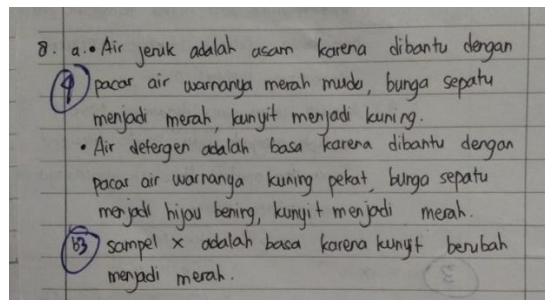 8. a. • Air jeruk adalah asam karena dibantu dengan
4 pacar air warnanya merah muda, bunga sepatu
menjadi merah, kunyit menjadi kuning.
• Air detergen adalah basa karena dibantu dengan
pacar air warnanya kuning pekat, bunga sepatu
menjadi hijau bening, kunyit menjadi merah.
b3 sampel x adalah basa karena kunyit berubah
menjadi merah.